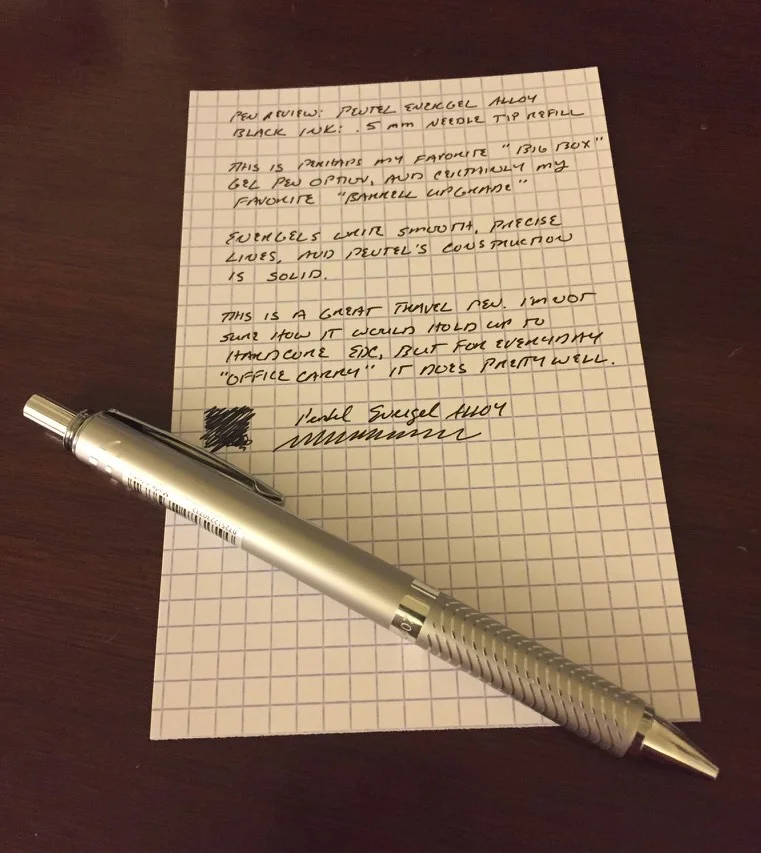 PEN REVIEW: PENTEL ENERGEL ALLOY
BLACK INK: .5 mm NEEDLE TIP REFILL
THIS IS PERHAPS MY FAVORITE "BIG BOX"
GEL PEN OPTION, AND CERTAINLY MY
FAVORITE "BARRELL UPGRADE"
ENERGELS WRITE SMOOTH, PRECISE
LINES, AND PENTEL'S CONSTRUCTION
IS SOLID.
THIS IS A GREAT TRAVEL PEN. I'M NOT
SURE HOW IT WOULD HOLD UP TO
HARDCORE EDC, BUT FOR EVERYDAY
"OFFICE CARRY" IT DOES PRETTY WELL.
Pentel Energel ALLOY